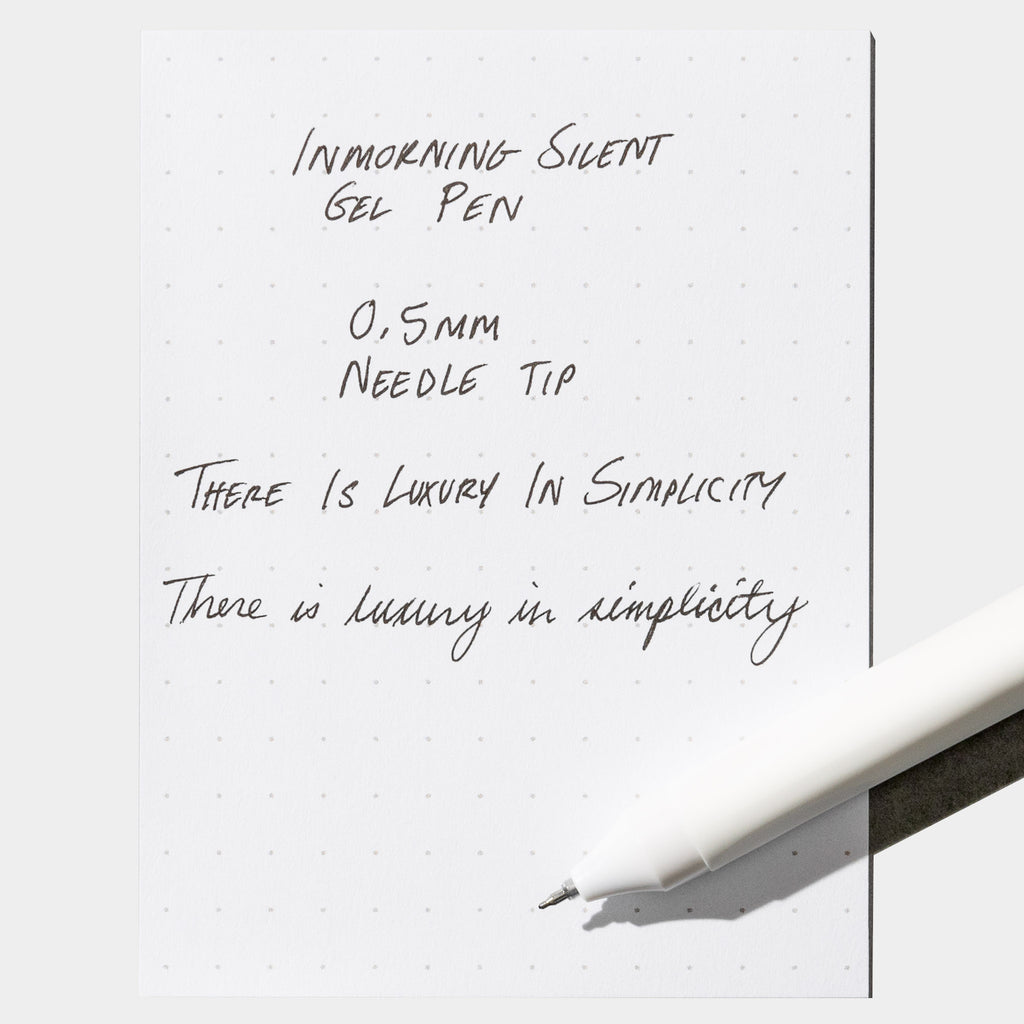 INMORNING SILENT
GEL PEN
0.5MM
NEEDLE TIP
THERE IS LUXURY IN SIMPLICITY
There is luxury in simplicity